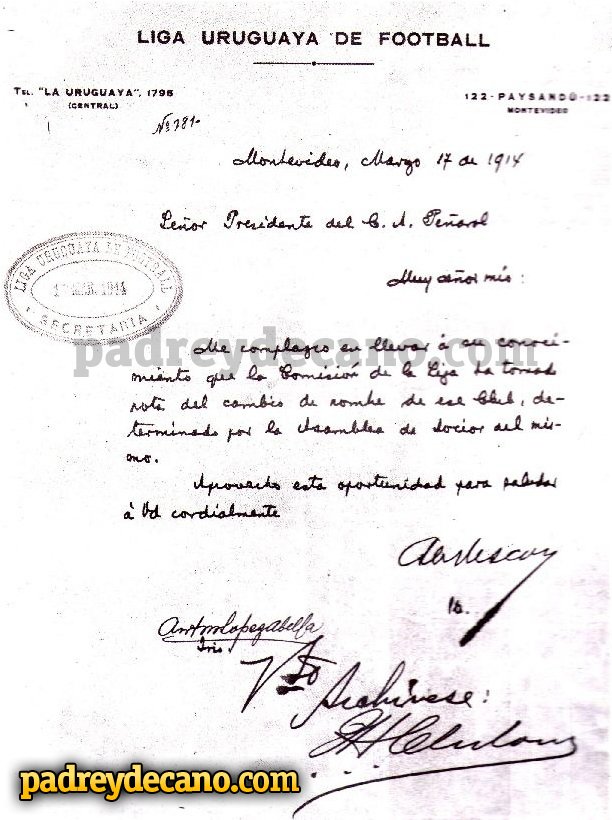 LIGA URUGUAYA DE FOOTBALL
TEL. "LA URUGUAYA", 1795
(CENTRAL)
122-PAYSANDÚ-122
MONTEVIDEO
Nº 781-
Montevideo, Marzo 17 de 1914
Señor Presidente del C. A. Peñarol
Muy señor mío:
LIGA URUGUAYA DE FOOTBALL
1914
SECRETARIA
padreydecano.com
Me complazco en llevar á su conoci-
miento que la Comisión de la Liga ha tomado
nota del cambio de nombre de ese Club, de-
terminado por la Asamblea de socios del mis-
mo.
Aprovecho esta oportunidad para saludar
á Vd cordialmente
Vto Archívese:
padreydecano.com